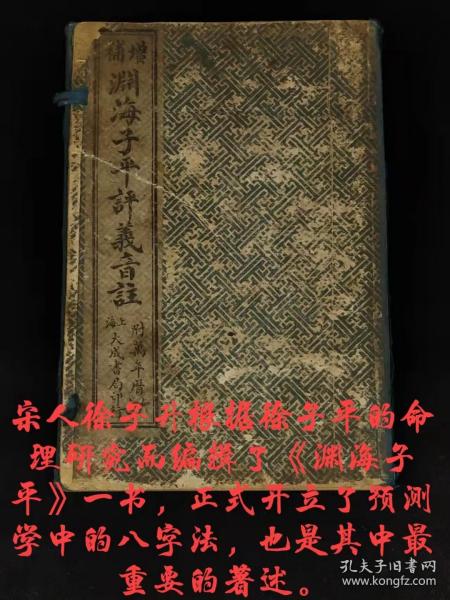 增補
淵海子平評義音註
附萬年曆
上海大成書局印
宋人徐子升根据徐子平的命
理研究而编撰了《渊海子
平》一书，正式开立了预测
学中的八字法，也是其中最
重要的著述。
孔夫子旧书网
www.kongfz.com